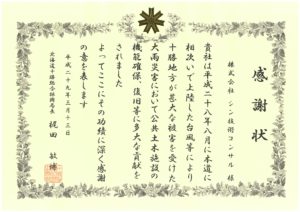 感謝状
株式会社 シン技術コンサル 様
貴社は平成二十八年八月に本道に
相次いで上陸した台風等により
十勝地方が甚大な被害を受けた
大雨災害において公共土木施設の
機能確保、復旧等に多大な貢献を
されました
よってここにその功績に深く感謝
の意を表します
平成二十九年三月十三日
北海道十勝総合振興局長 梶田 敏博